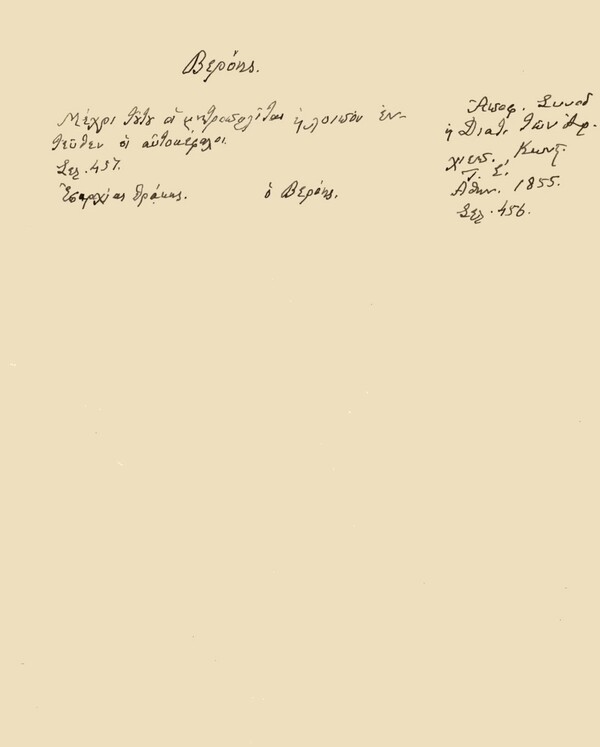 Βερόης.
Μέχρι τȣ́τȣ οἱ μητροπολῖται λοιπὸν ἐν-
τεῦθεν οἱ αὐτοκέφαλοι.
Σελ. 457.
Ἐπαρχίας Θράκης. ὁ Βερόης.
Συνοδ
ἡ Διατ. τῶν Ἀρ-
χιεπ., Κωνστ.
Τ. Ε.
Ἀθην. 1855.
Σελ. 456.